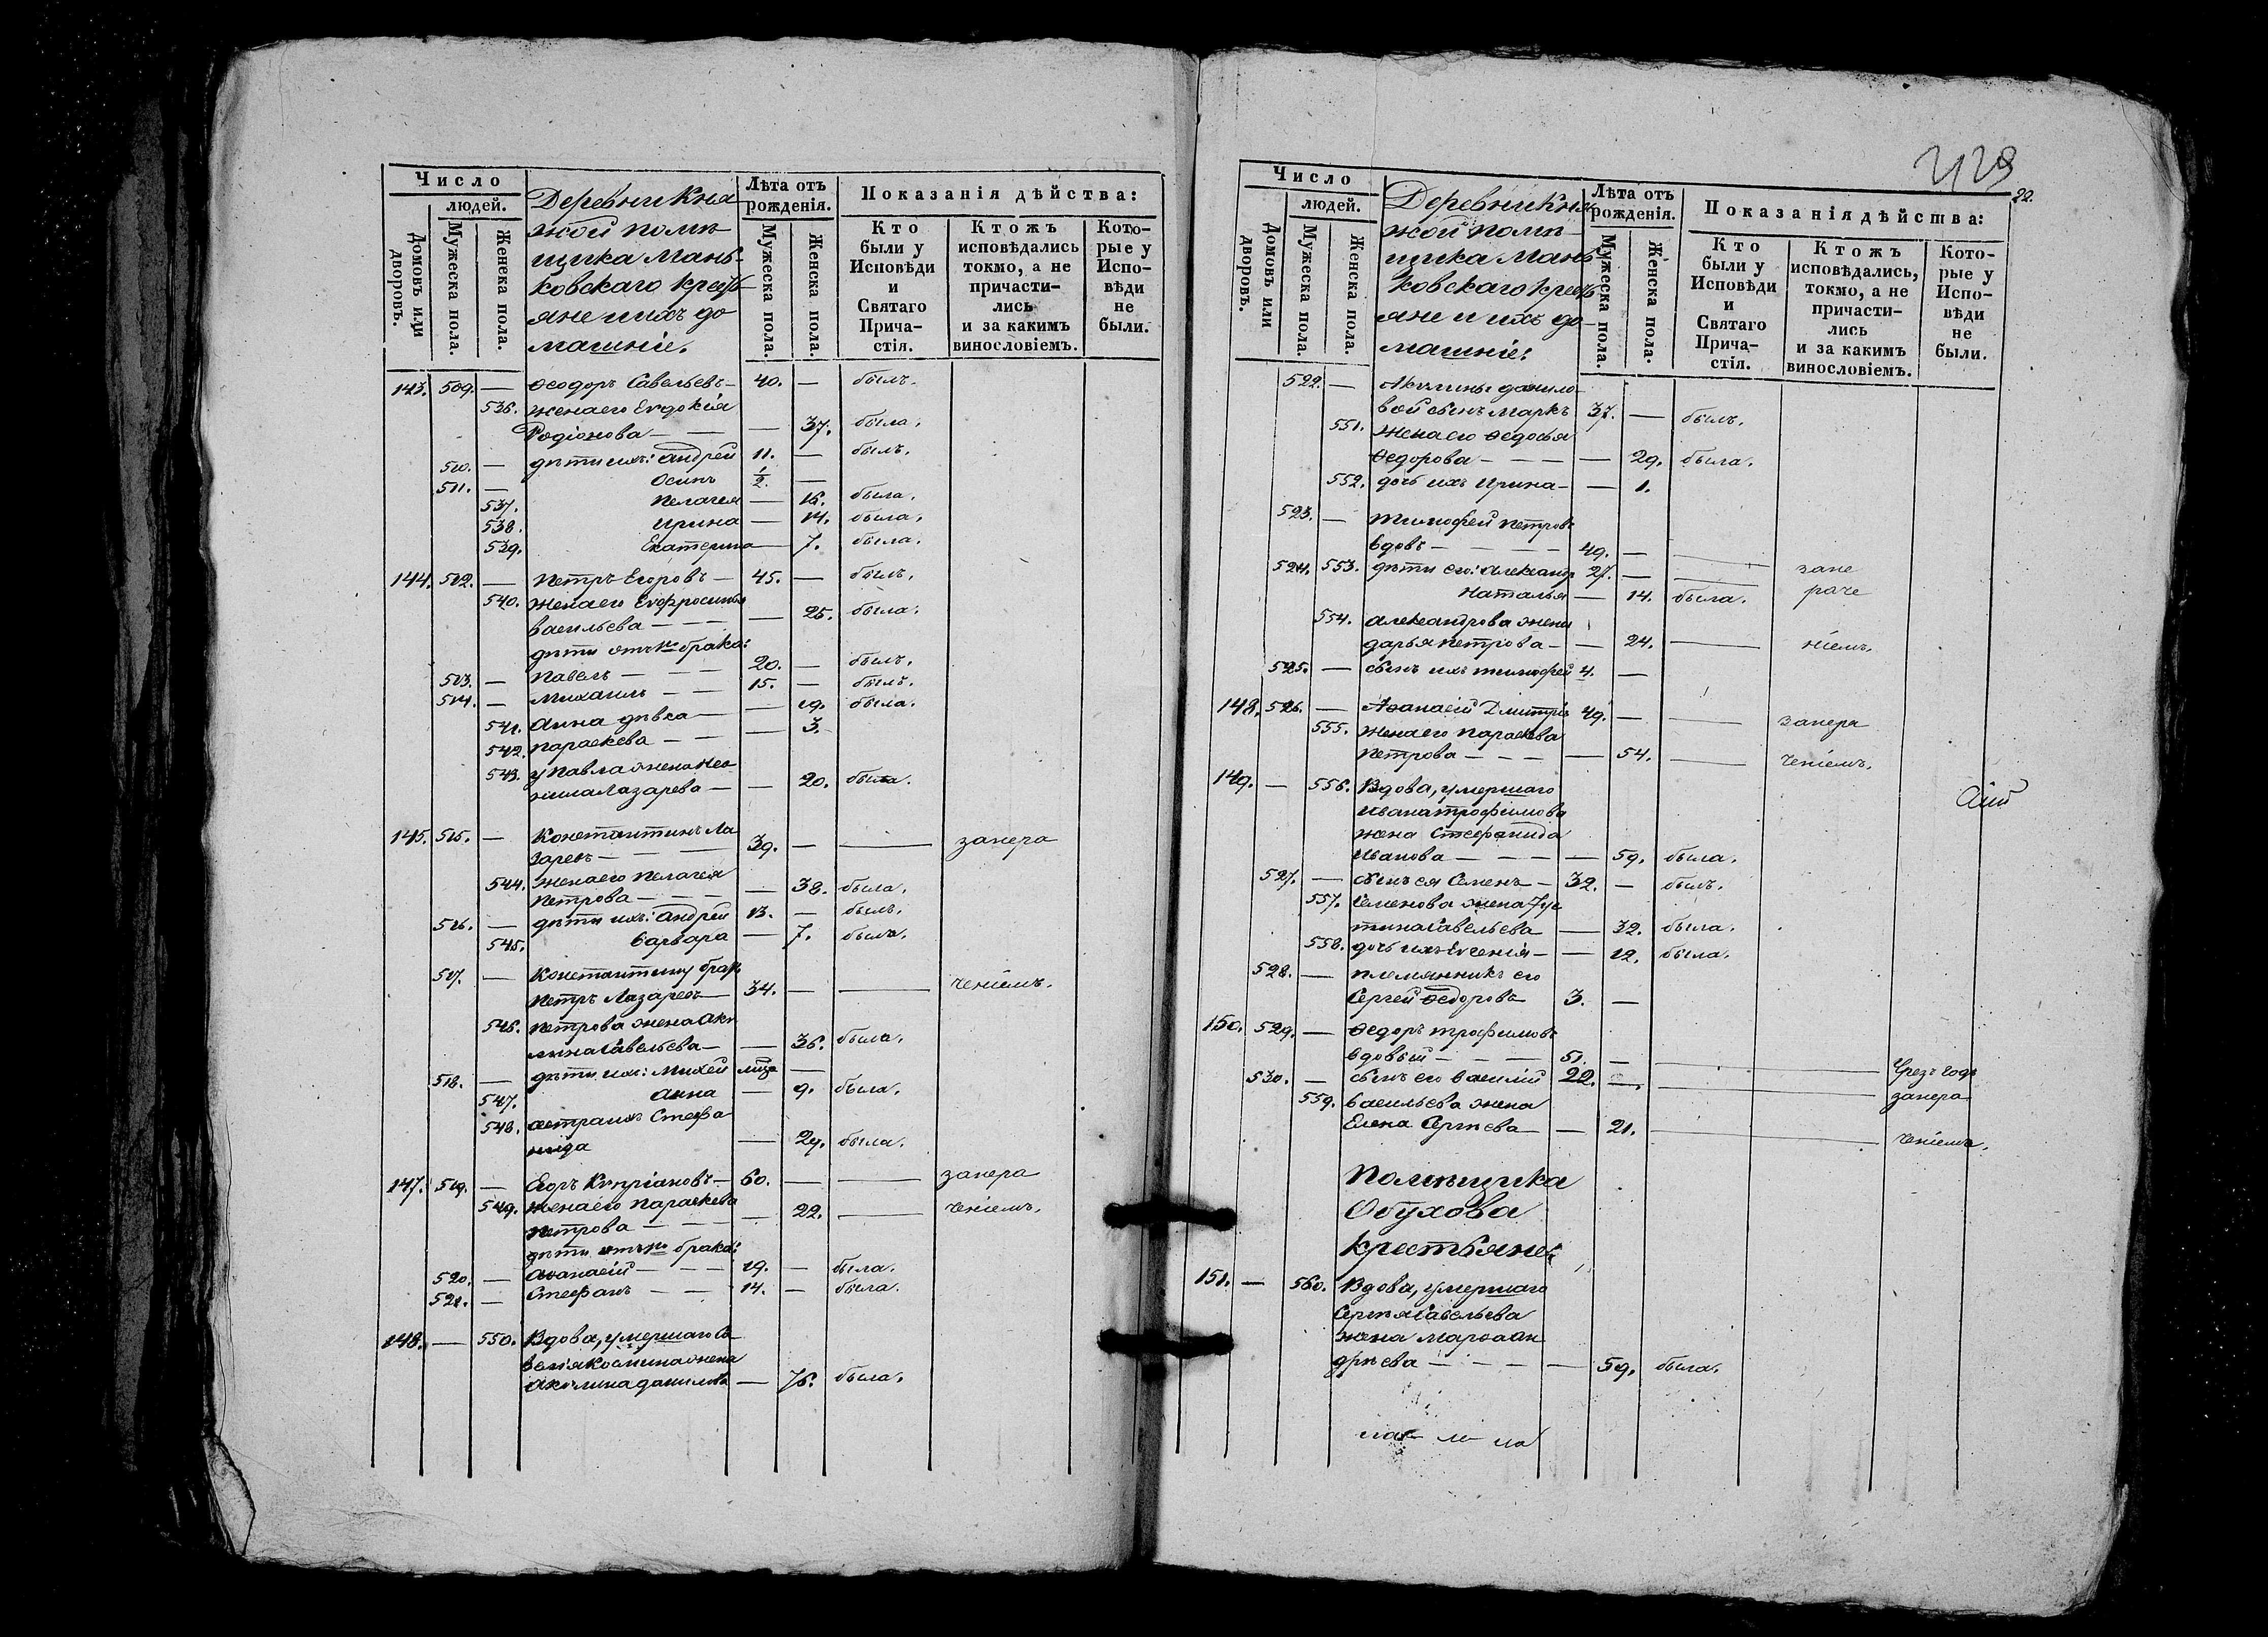 Число
людей.
Домовъ или дворовъ.
Мужеска пола.
Женска пола.
Деревни Кня
жой помѣ
щика Мань-
ковскаго крестъ
яне и ихъ до
машніе.
Лѣта отъ рожденія.
Мужеска пола.
Женска пола.
Показанія дѣйства:
Кто были у Исповѣди и Святаго Прича- стія.
Ктожъ исповѣдались токмо, а не причасти- лись и за какимъ винословіемъ.
Кото- рые у Испо- вѣди не были.
143. 509. — Ѳеодоръ Савельевъ — 40. — былъ.
536. жена его Евдокія
Родіонова — — — 37. была.
510. — дѣти ихъ: Андрей 11. — былъ.
511. — Осипъ ½. —
537. Пелагея — 16. была.
538. Ирина — 14. была.
539. Екатерина — 7. была.
144. 512. — Петръ Егоровъ — 45. — былъ.
540. жена его Евфросинья
Васильева — — — 25. была.
дѣти отъ 1го брака:
513. — Павелъ — — 20. — былъ.
514. — Михаилъ — — 15. — былъ.
541. Анна дѣвка — — 19. была.
542. Параскева — — — 3.
543. у Павла жена Нео
нила Лазарева — — 20. была.
145. 515. — Константинъ Ла
заревъ — — — 39. — — занера
544. жена его Пелагея
Петрова — — — — 38. была.
516. — дѣти ихъ: Андрей 13. — былъ.
545. Варвара — 7. была.
517. — Константину братъ
Петръ Лазаревъ — 34. — — ченіемъ.
546. Петрова жена Аку
лина Савельева — — 36. была.
518. — дѣти ихъ: Михей —
547. Анна — 9. была.
548. сестра ихъ Стефа
нида — 24. была.
147. 519. — Егоръ Купріановъ — 60. — — занера
549. жена его Параскева
Петрова — — — 22. — ченіемъ.
дѣти отъ 1го брака:
520. — Аѳанасій — — — 19. — была.
521. — Стефанъ — — 14. — была.
148. — 550. Вдова, умершаго Са
велія Космина жена
Акулина Данилова — 76. была.
22.
Число
людей.
Домовъ или дворовъ.
Мужеска пола.
Женска пола.
Деревни Кня
жой помѣ
щика Мань
ковскаго крестъ
яне и ихъ до
машніе:
Лѣта отъ рожденія.
Мужеска пола.
Женска пола.
Показанія дѣйства:
Кто были у Исповѣди и Святаго Прича- стія.
Ктожъ исповѣдались, токмо, а не причасти- лись и за какимъ винословіемъ.
Кото- рые у Испо- вѣди не были.
522. — Акулины Данило
вой сынъ Маркъ 37. — былъ.
551. жена его Ѳедосья
Ѳедорова — — — — 29. была.
552. дочь ихъ Ирина — — 1.
523. — Тимофей Петровъ
вдовъ — — — — 49. — —
524. 553. дѣти его: Александръ 27. — — зане
Наталья — 14. была. раче
554. Александрова жена
Дарья Петрова — — 24. — ніемъ.
525. — сынъ ихъ Тимофей 4. —
148. 526. — Аѳанасій Дмитріевъ 49. — — занера
555. жена его Параскева
Петрова — — — — 54. — ченіемъ.
149. — 556. Вдова, умершаго
Ивана Трофимова
жена Стефанида
Иванова — — — — 59. была.
527. — сынъ ея Семенъ — 32. — былъ.
557. Семенова жена Ус
тина Савельева — 32. была.
558. дочь ихъ Евгенія — — 12. была.
528. — племянникъ его
Сергей Ѳедоровъ 3. —
150. 529. — Ѳедоръ Трофимовъ
вдовый — — — 51. — — Чрезъ годъ
530. — сынъ его Василій 22. — — занера
559. Васильева жена
Елена Сергѣева — — 21. — ченіемъ.
Помѣщика
Обухова
крестьяне:
151. — 560. Вдова, умершаго
Сергѣя Савельева
жена Марѳа Ан
дрѣева — — — — 59. была.